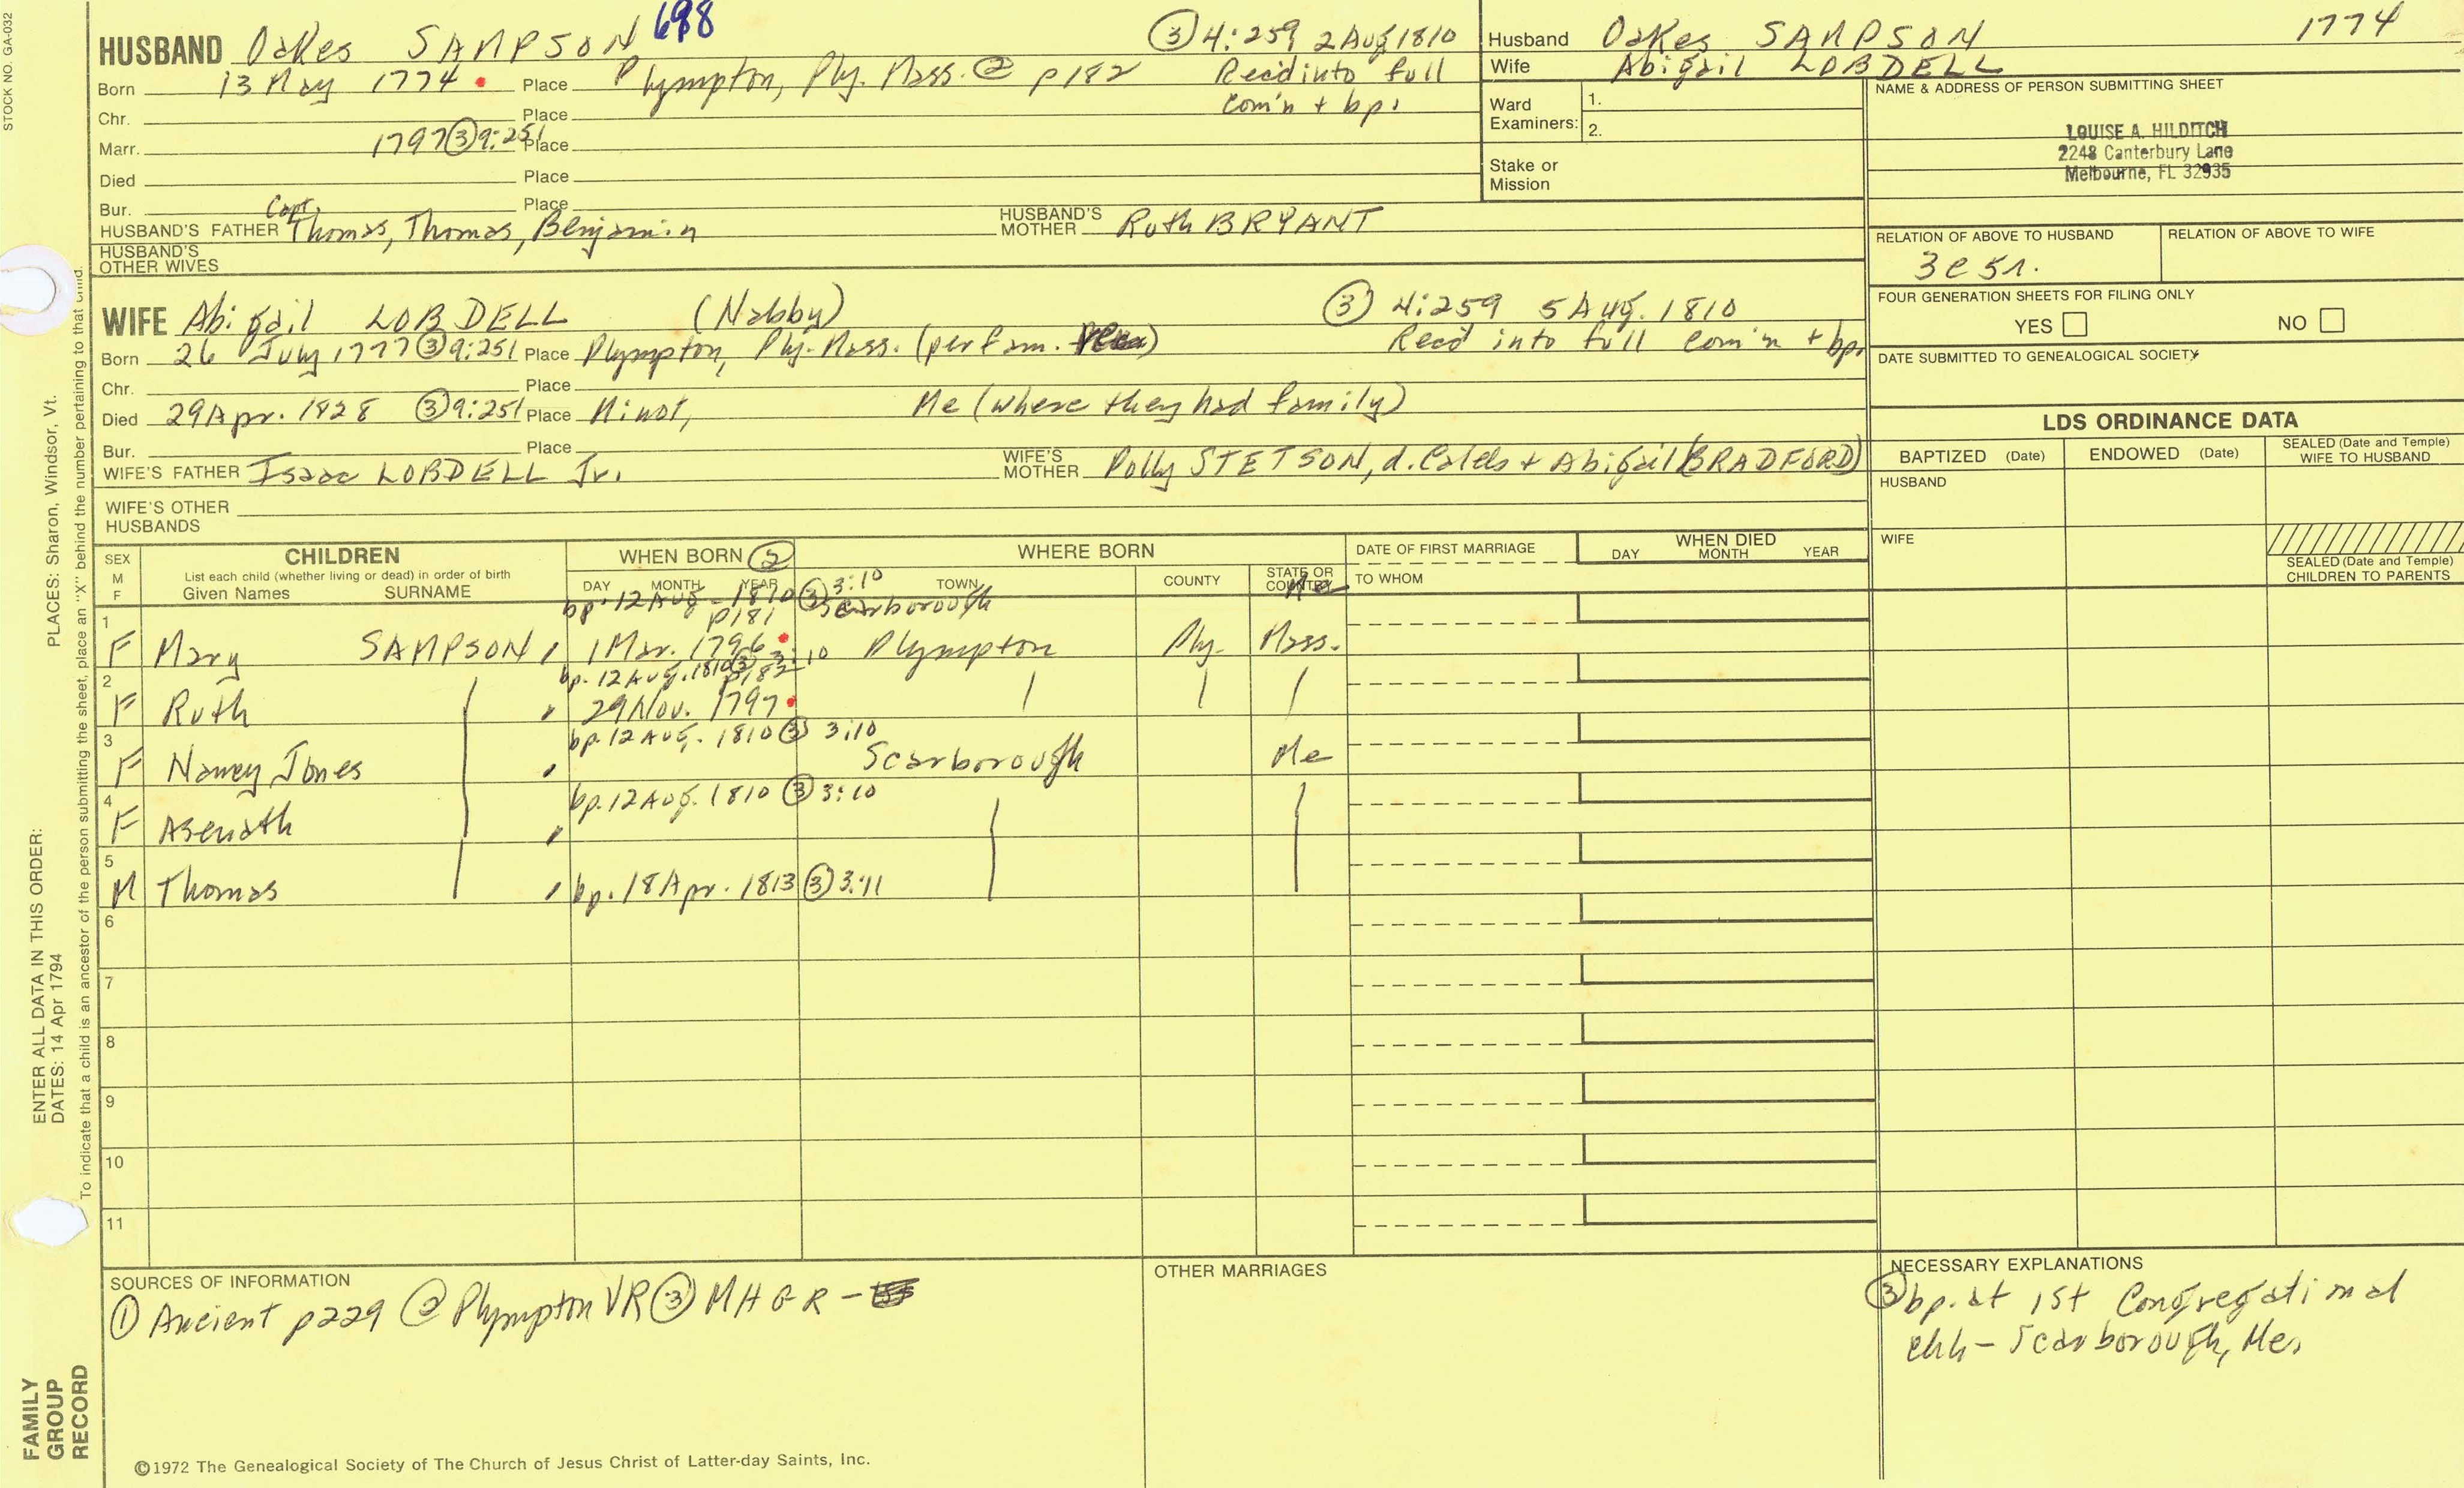 STOCK NO. GA-032
698
HUSBAND Oakes SAMPSON
Born 13 May 1774 Place Plympton, Ply. Mass. ② p182
③ 4:259 2 Aug 1810
Rec'd into full
com'n + bp.
Chr. Place
Marr. 1797 ③ 9:251 Place
Died Place
Bur. Place
HUSBAND'S FATHER Capt. Thomas, Thomas, Benjamin
HUSBAND'S MOTHER Ruth BRYANT
HUSBAND'S OTHER WIVES
WIFE Abigail LOBDELL (Nabby)
③ 4:259 5 Aug. 1810
Rec'd into full com'n + bp.
Born 26 July 1777 ③ 9:251 Place Plympton, Ply. Mass. (per fam.
Chr. Place
Died 29 Apr. 1828 ③ 9:251 Place Minot, Me (where they had family)
Bur. Place
WIFE'S FATHER Isaac LOBDELL Jr.
WIFE'S MOTHER Polly STETSON, d. Caleb + Abigail (BRADFORD)
WIFE'S OTHER HUSBANDS
Husband Oakes SAMPSON 1774
Wife Abigail LOBDELL
Ward Examiners: 1.
2.
Stake or Mission
NAME & ADDRESS OF PERSON SUBMITTING SHEET
LOUISE A. HILDITCH
2248 Canterbury Lane
Melbourne, FL 32935
RELATION OF ABOVE TO HUSBAND
3c5r.
RELATION OF ABOVE TO WIFE
FOUR GENERATION SHEETS FOR FILING ONLY
YES NO
DATE SUBMITTED TO GENEALOGICAL SOCIETY
LDS ORDINANCE DATA
BAPTIZED (Date) ENDOWED (Date) SEALED (Date and Temple) WIFE TO HUSBAND
HUSBAND
WIFE
SEALED (Date and Temple) CHILDREN TO PARENTS
SEX M F
CHILDREN
List each child (whether living or dead) in order of birth
Given Names SURNAME
WHEN BORN ②
DAY MONTH YEAR
WHERE BORN
TOWN COUNTY STATE OR COUNTRY
DATE OF FIRST MARRIAGE
TO WHOM
WHEN DIED
DAY MONTH YEAR
bp. 12 Aug. 1810 ③ 3:10 Scarborough Me
p181
1 F Mary SAMPSON 1 Mar. 1796 Plympton Ply. Mass.
bp. 12 Aug. 1810 ③ 3:10
p182
2 F Ruth 29 Nov. 1797
bp. 12 Aug. 1810 ③ 3:10
3 F Nancy Jones Scarborough Me
bp. 12 Aug. 1810 ③ 3:10
4 F Asenath
5 M Thomas bp. 18 Apr. 1813 ③ 3:11
6
7
8
9
10
11
SOURCES OF INFORMATION
① Ancient p229 ② Plympton VR ③ MHGR -
OTHER MARRIAGES
NECESSARY EXPLANATIONS
③ bp. at 1st Congregational
chh - Scarborough, Me.
©1972 The Genealogical Society of The Church of Jesus Christ of Latter-day Saints, Inc.
FAMILY
GROUP
RECORD
ENTER ALL DATA IN THIS ORDER:
DATES: 14 Apr 1794
PLACES: Sharon, Windsor, Vt.
To indicate that a child is an ancestor of the person submitting the sheet, place an "X" behind the number pertaining to that child.